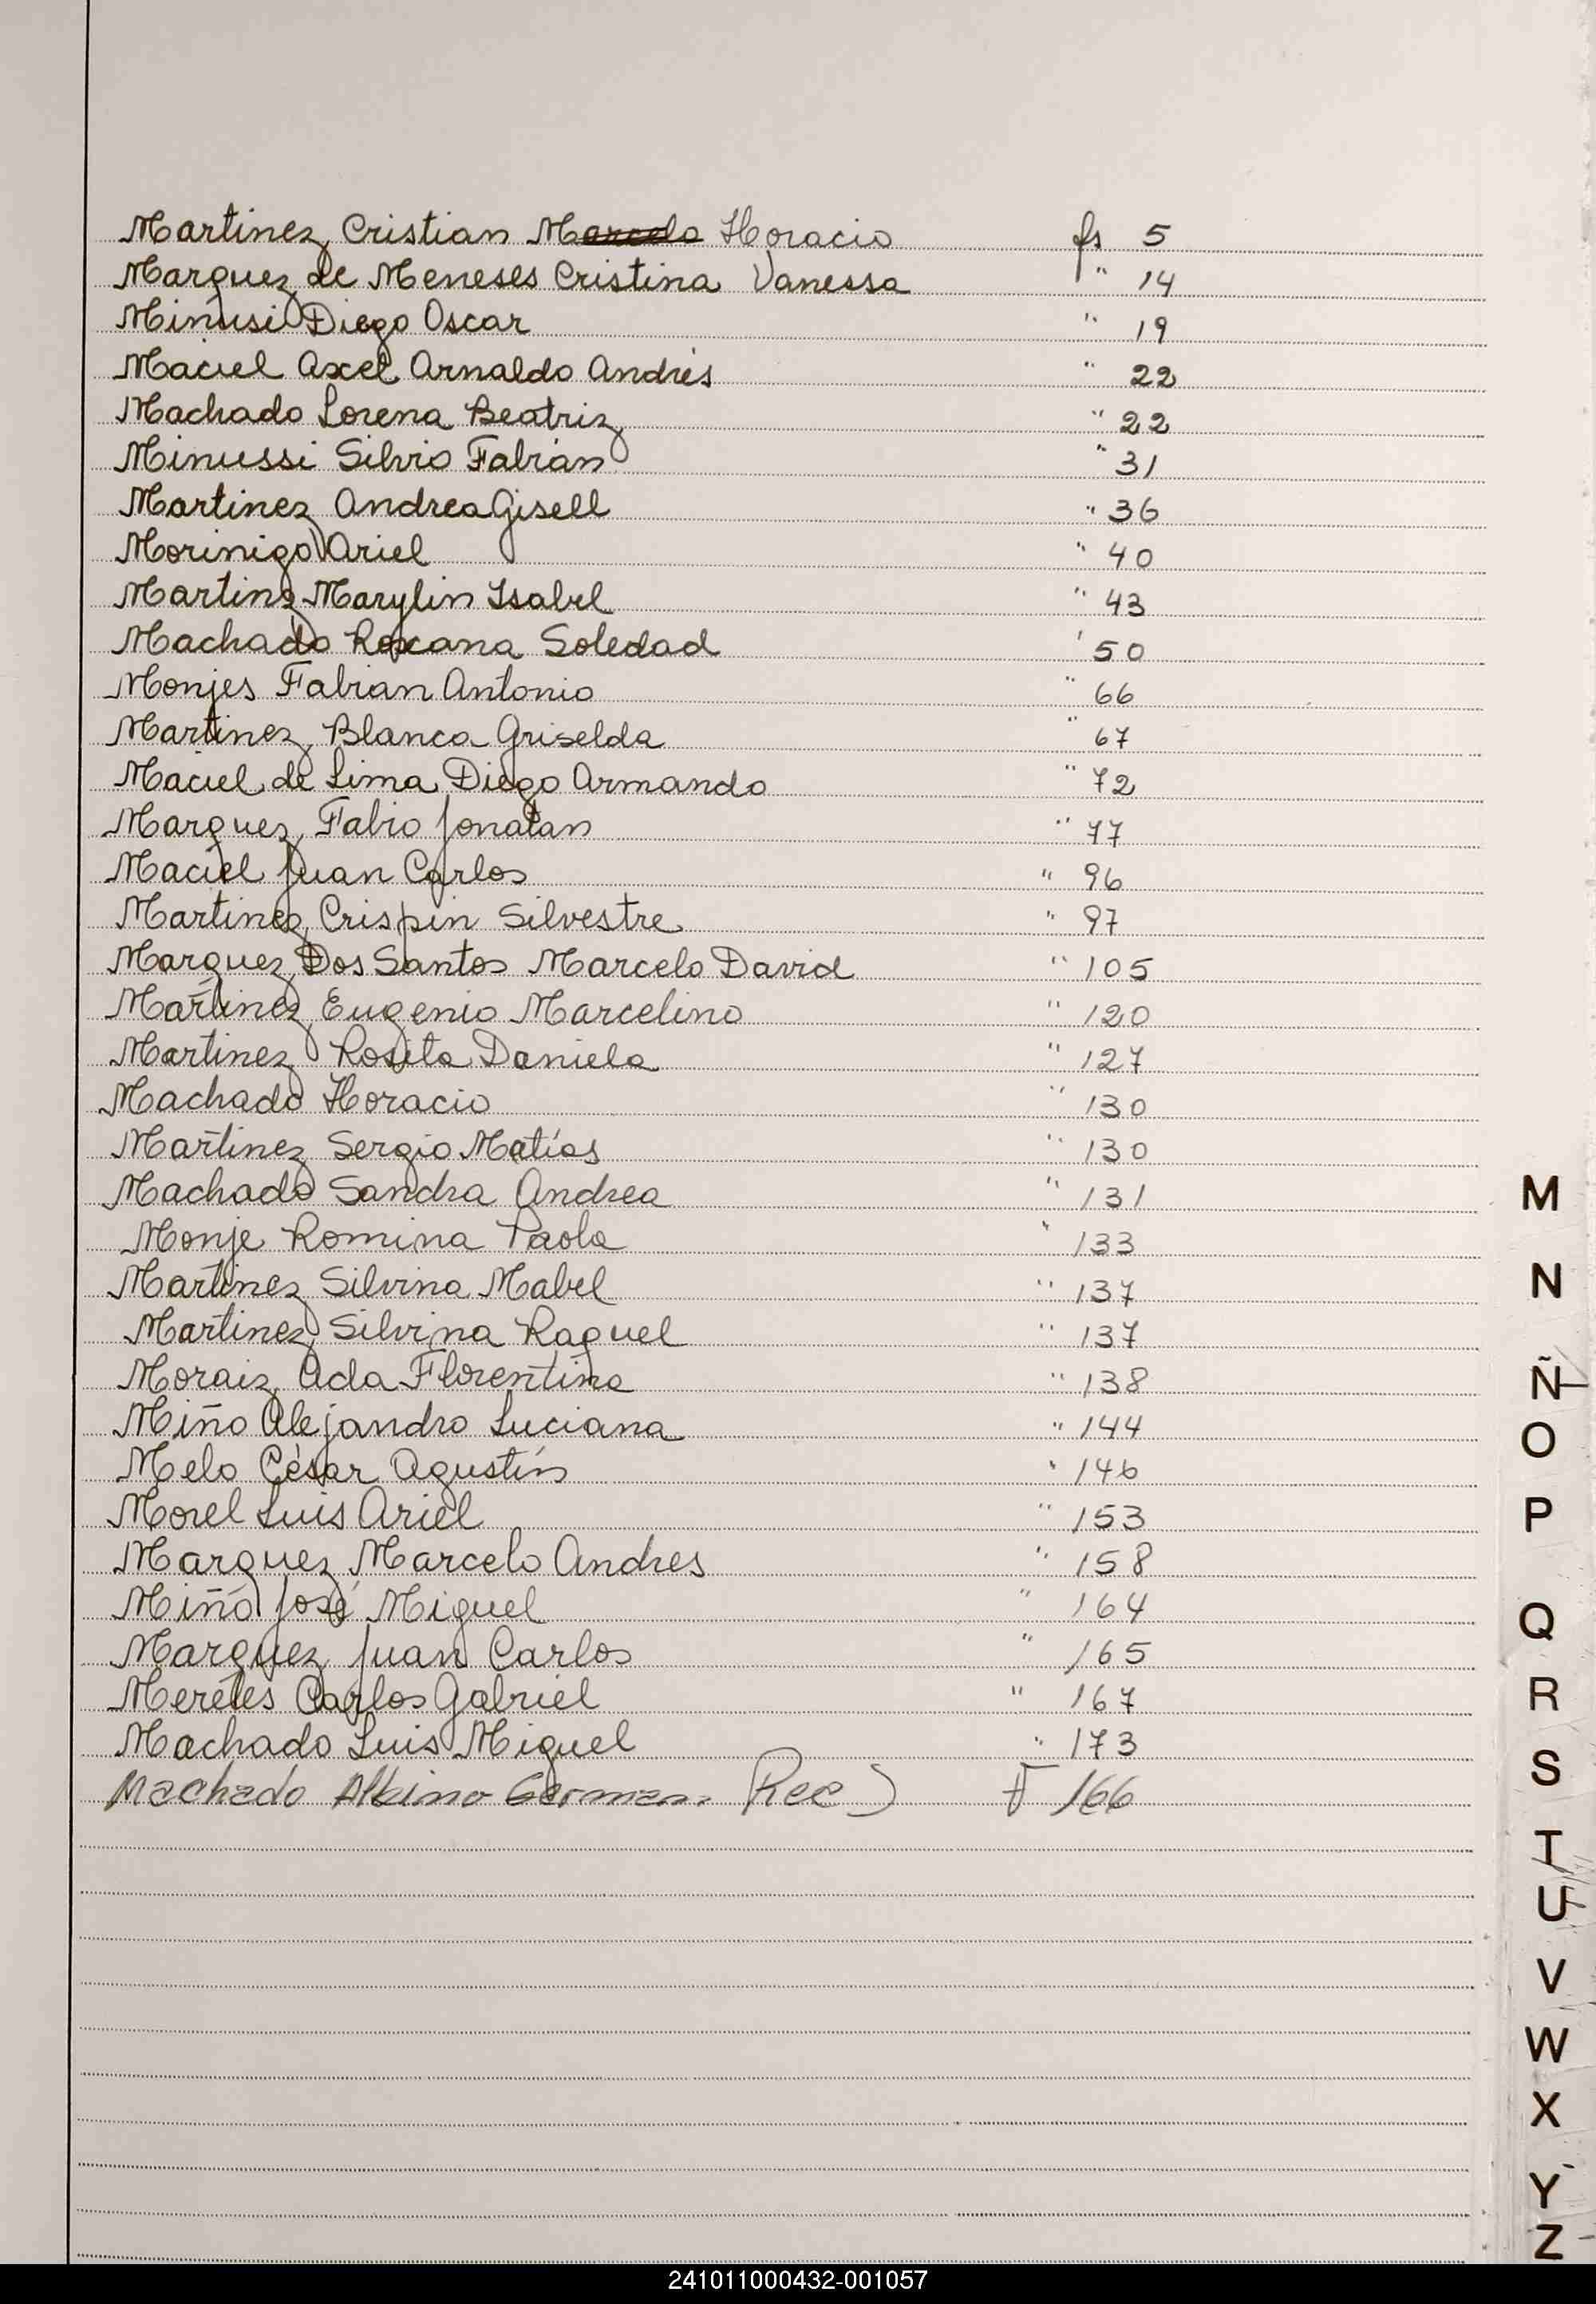 Martinez Cristian Marcelo Horacio fs 5
Marquez de Meneses Cristina Vanessa " 14
Minusi Diego Oscar " 19
Maciel Axel Arnaldo Andrés " 22
Machado Lorena Beatriz " 22
Minussi Silvio Fabián " 31
Martinez Andrea Gisell " 36
Morinigo Ariel " 40
Martinz Marylin Isabel " 43
Machado Roxana Soledad ' 50
Monjes Fabian Antonio " 66
Martinez Blanca Griselda " 67
Maciel de Lima Diego Armando " 72
Marquez Fabio Jonatan " 77
Maciel Juan Carlos " 96
Martinez Crispin Silvestre " 97
Marquez Dos Santos Marcelo David " 105
Martinez Eugenio Marcelino " 120
Martinez Rosita Daniela " 127
Machado Horacio " 130
Martinez Sergio Matías " 130
Machado Sandra Andrea " 131
Monje Romina Paola " 133
Martinez Silvina Mabel " 137
Martinez Silvina Raquel " 137
Moraiz Ada Florentina " 138
Miño Alejandro Luciana " 144
Melo César Agustín " 146
Morel Luis Ariel " 153
Marquez Marcelo Andres " 158
Miño José Miguel " 164
Marquez Juan Carlos " 165
Mereles Carlos Gabriel " 167
Machado Luis Miguel " 173
Machado Albino German. Rec) F 166
M
N
Ñ
O
P
Q
R
S
T
U
V
W
X
Y
Z
241011000432-001057